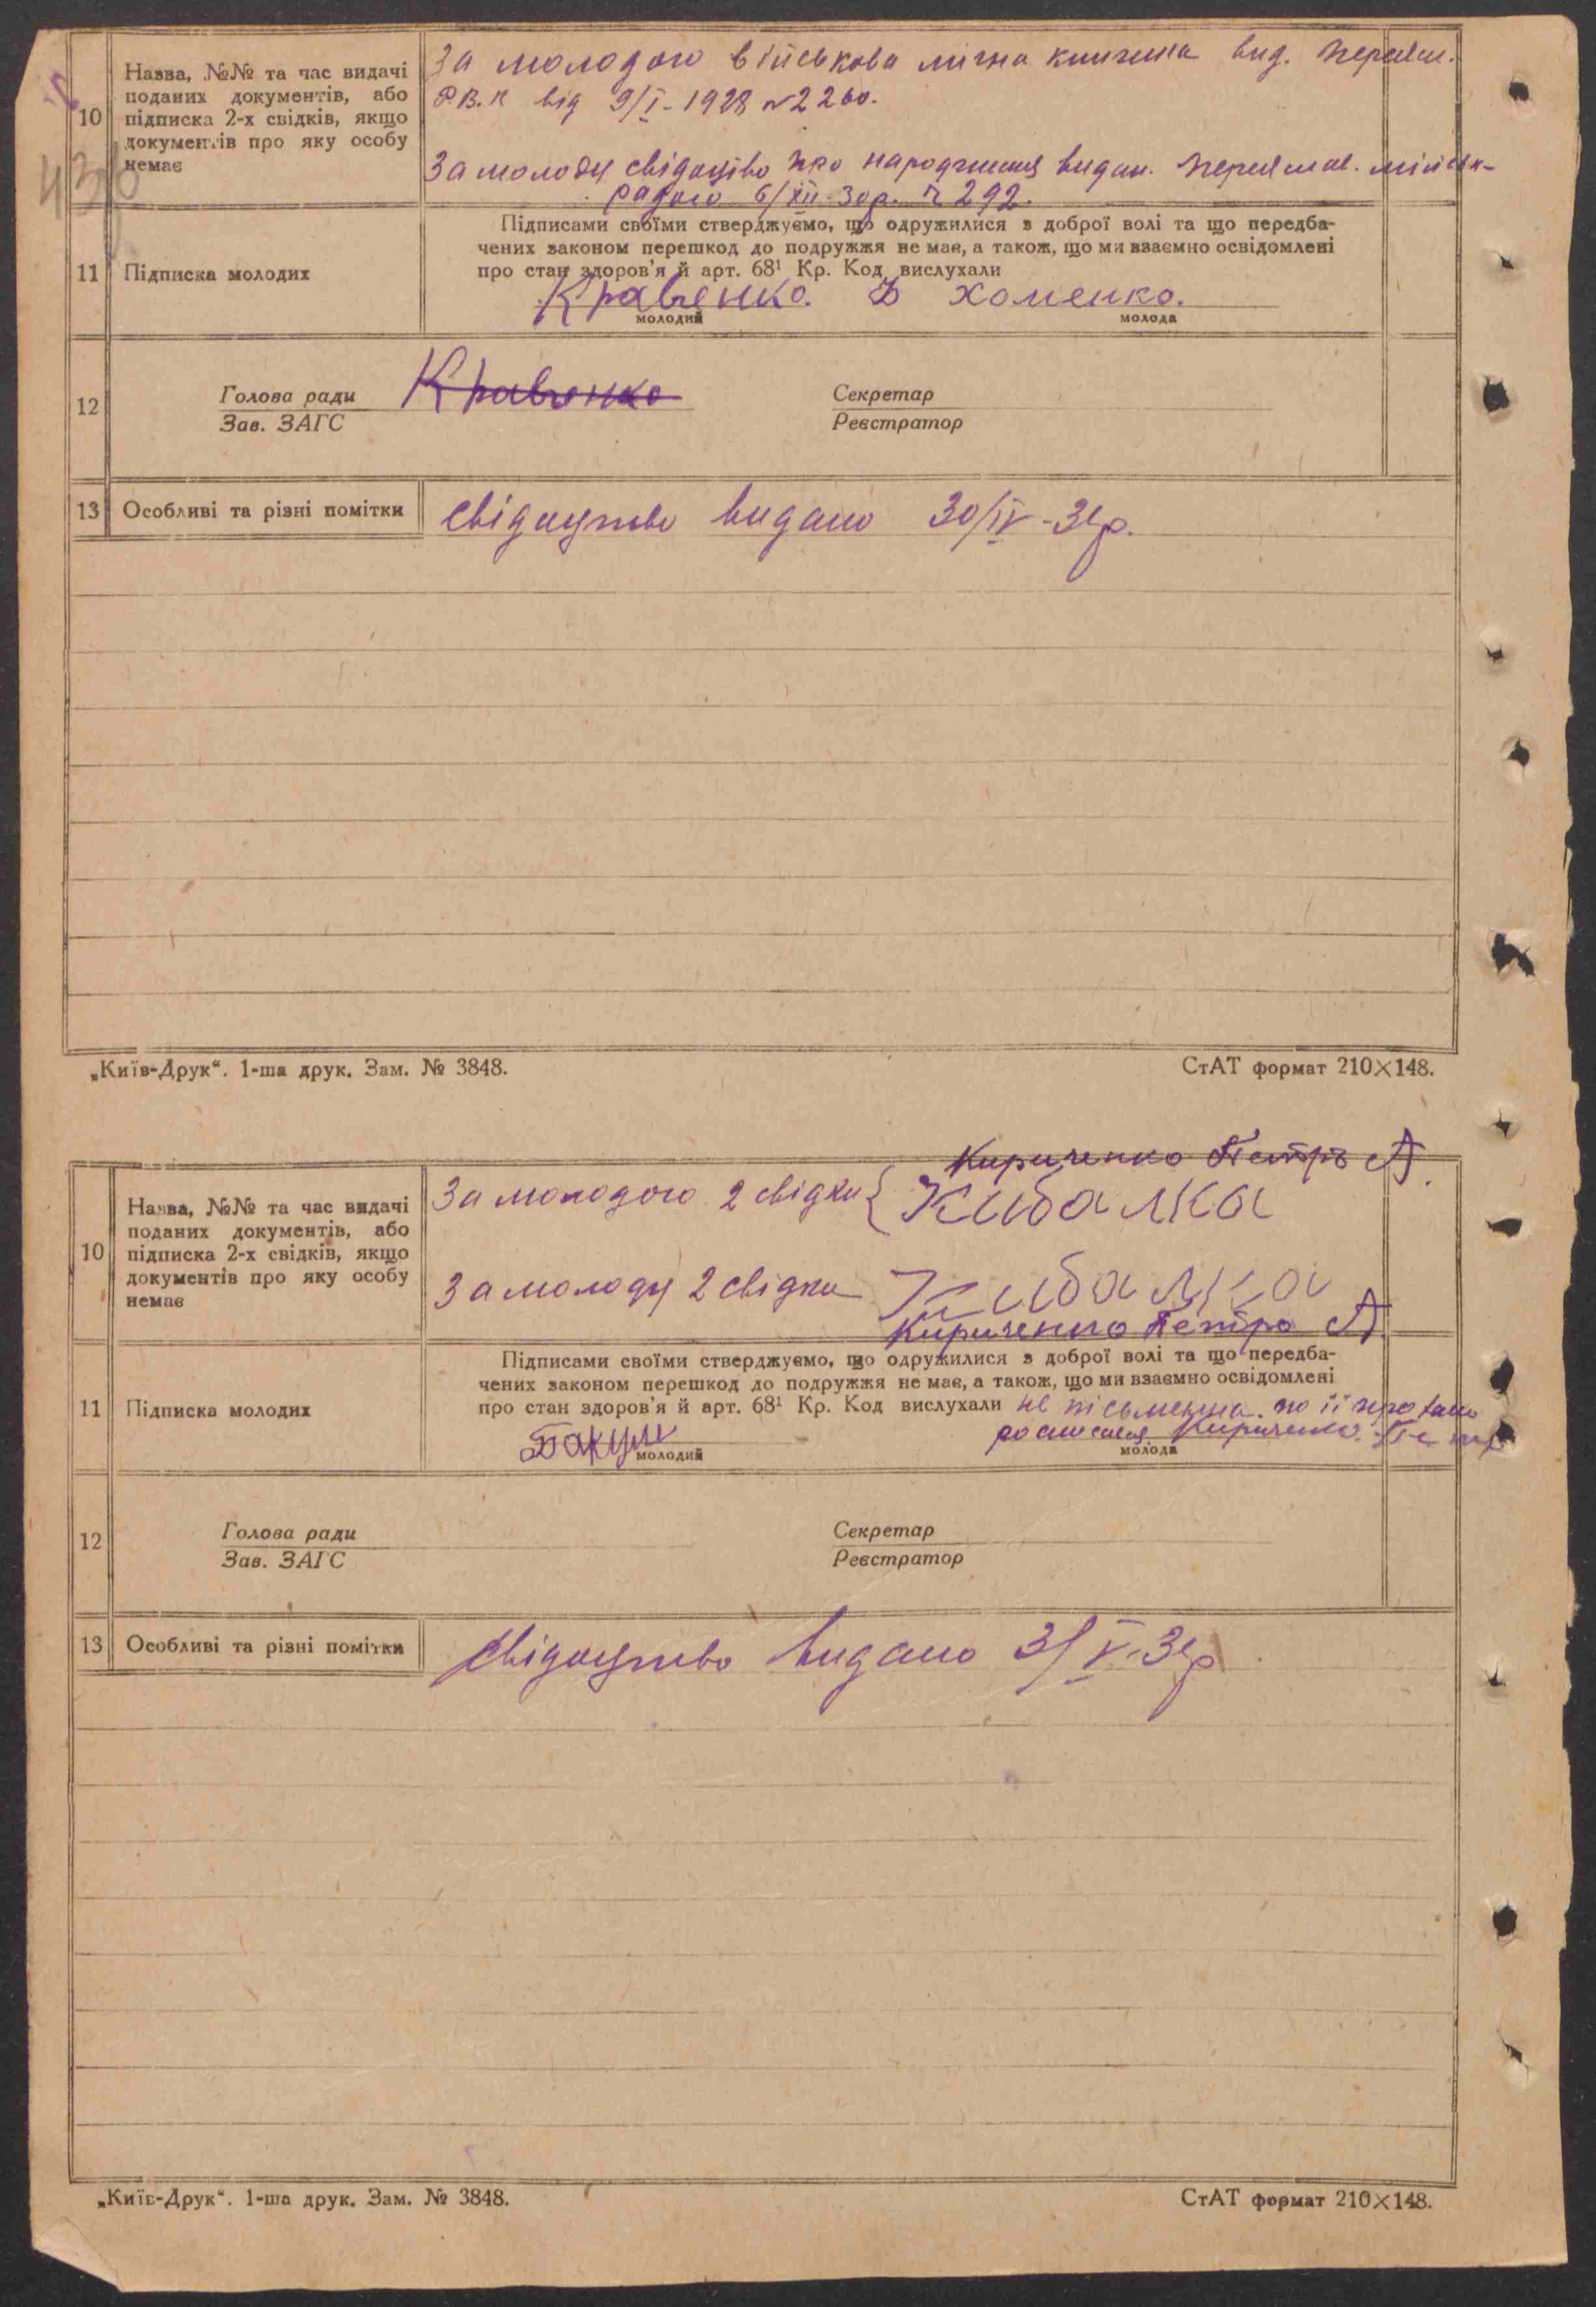 За молодого військова лічна книжка вид. Переясл.
Назва, №№ та час видачі
поданих документів, або
підписка 2-х свідків, якщо
документів про яку особу
немає
10
Р.В.К від 9/I-1928 №2260.
За молоду свідоцтво про народження видан. Переяслав. міськ-
радою 6/XII-30р. № 292.
Підписами своїми стверджуємо, що одружилися з доброї волі та що передба-
чених законом перешкод до подружжя не має, а також, що ми взаємно освідомлені
про стан здоров'я й арт. 68¹ Кр. Код вислухали
11 Підписка молодих
Кравченко. Хоменко.
молодий молода
12
Голова ради Кравченко Секретар
Зав. ЗАГС Реєстратор
13 Особливі та різні помітки свідоцтво видано 30/IV-31р.
„Київ-Друк“. 1-ша друк. Зам. № 3848. СтАТ формат 210×148.
Кириченко Петро А.
Назва, №№ та час видачі
поданих документів, або
підписка 2-х свідків, якщо
документів про яку особу
немає
10
За молодого 2 свідки { Кибалка
За молоду 2 свідки Кибалка
Кириченко Петро А
Підписами своїми стверджуємо, що одружилися з доброї волі та що передба-
чених законом перешкод до подружжя не має, а також, що ми взаємно освідомлені
про стан здоров'я й арт. 68¹ Кр. Код вислухали не письменна. по її
11 Підписка молодих
Бакум Кириченко Петр
молодий молода
12
Голова ради Секретар
Зав. ЗАГС Реєстратор
13 Особливі та різні помітки свідоцтво видано 3/V-31р
„Київ-Друк“. 1-ша друк. Зам. № 3848. СтАТ формат 210×148.